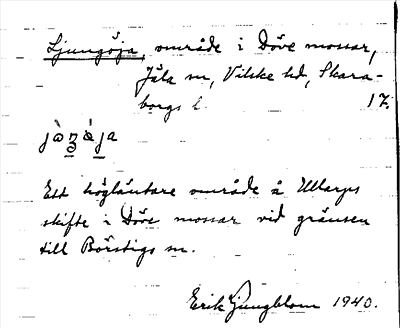 Ljungöja, område i Döve mossar,
Jäla sn, Vilske hd, Skara-
borgs l. 17.
Ett högläntare område å Ullarps
skifte i Döve mossar vid gränsen
till Börstigs sn.
Erik Ljungblom 1940.